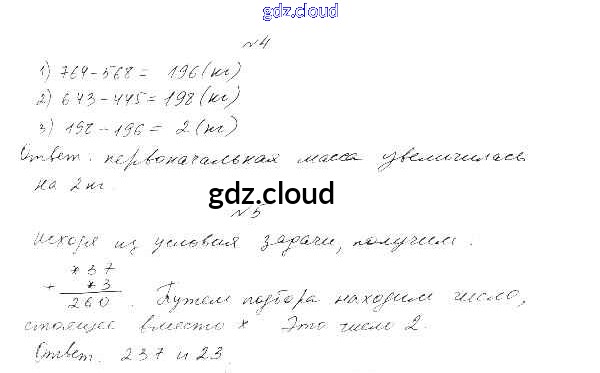 gdz.cloud
№4
1) 764-568= 196(кг)
2) 643-445=198(кг)
3) 198-196= 2(кг)
Ответ. первоначальная масса увеличилась
на 2кг.
gdz.cloud
№5
исходя из условия задачи, получим.
*37
+ *3
260. Путем подбора находим число,
стоящее вместо * Это число 2.
Ответ. 237 и 23.